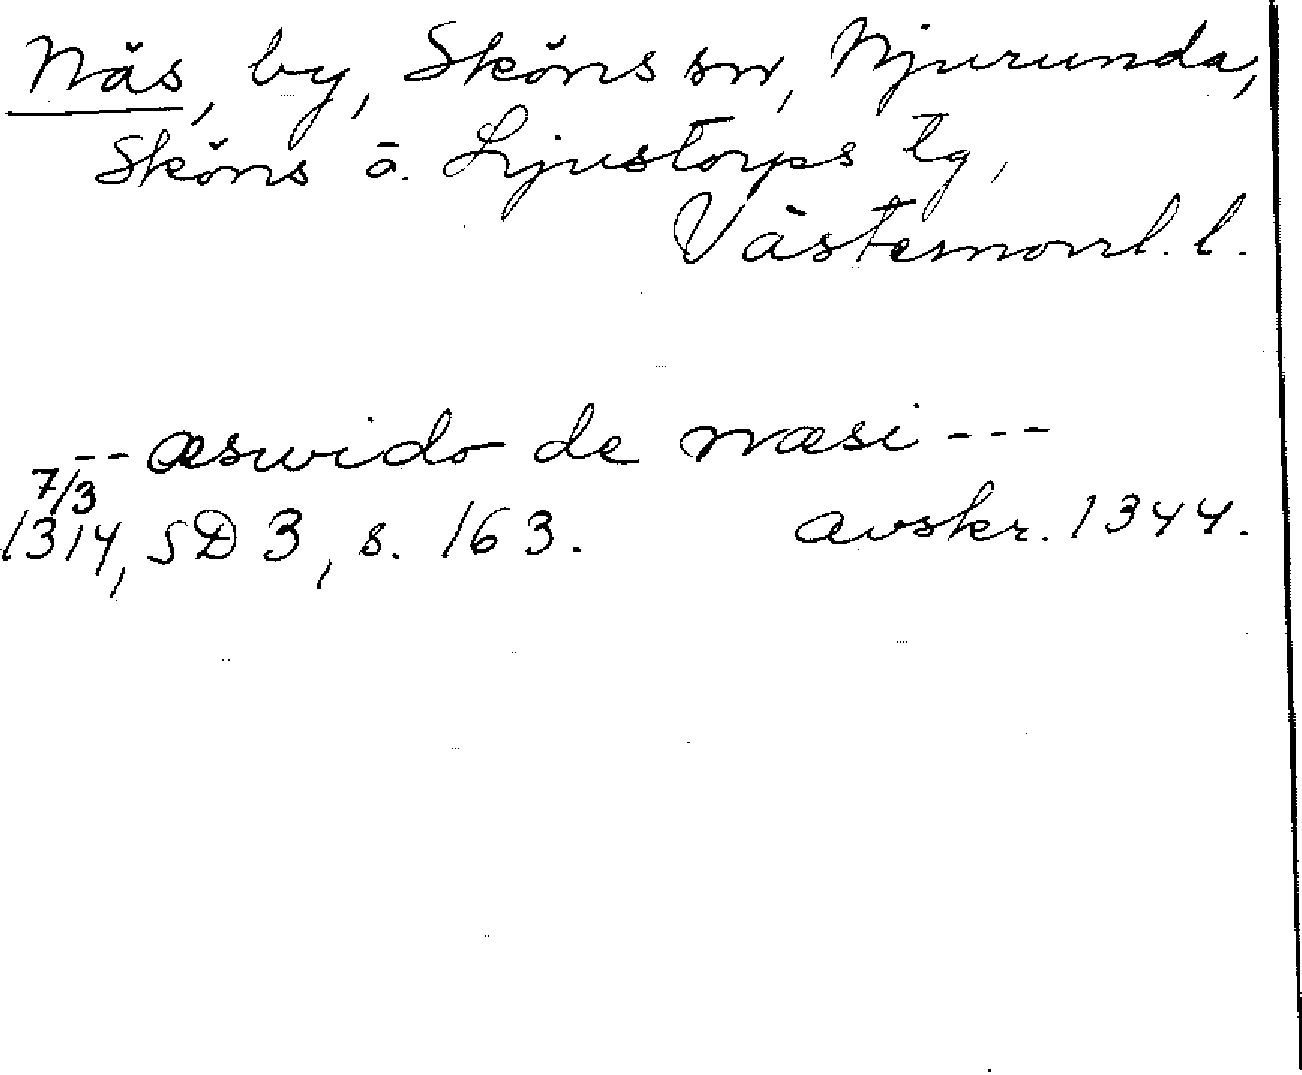 Näs, by, Sköns sn, Njurunda,
Sköns ö. Ljustorps tg,
Västernorrl. l.
-- æswido de næsi ---
7/3
1314, SD 3, s. 163. avskr. 1344.